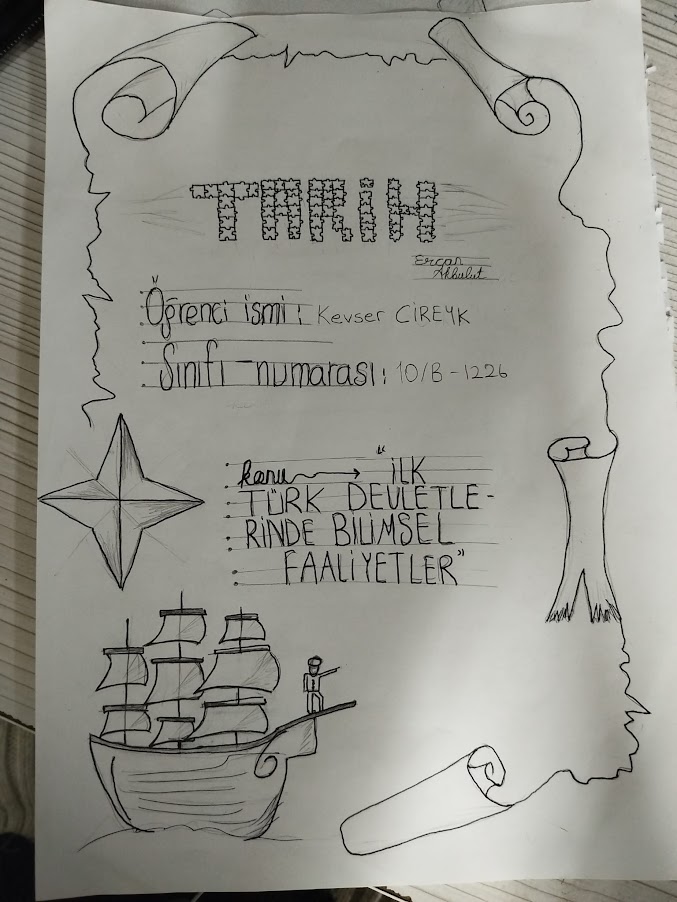 TARİH
Ercan
Akbulut
Öğrenci ismi: Kevser CİREYK
Sınıfı - numarası: 10/B - 1226
konu → "İLK
TÜRK DEVLETLE-
RİNDE BİLİMSEL
FAALİYETLER"